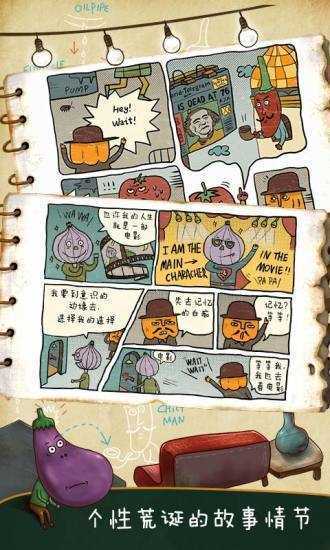 OILPIPE
PUMP
Hey!
Wait!
IS DEAD AT 76
WA WA!
也许我的人生
就是一部
电影
I AM THE
MAIN →
CHARACHER
IN THE
MOVIE!!
PA PA!
我要到意识的
边缘去,
选择我的选择
失去记忆
的白痴
记忆?
等等
电影
WAIT,
WAIT!
等等我,
我也去
看电影
CHILI
MAN
个性荒诞的故事情节